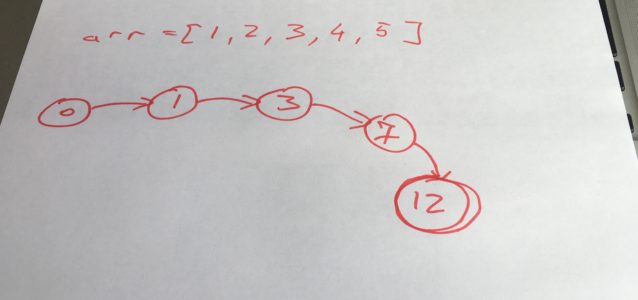 arr = [1, 2, 3, 4, 5]
0 1 3 7 12